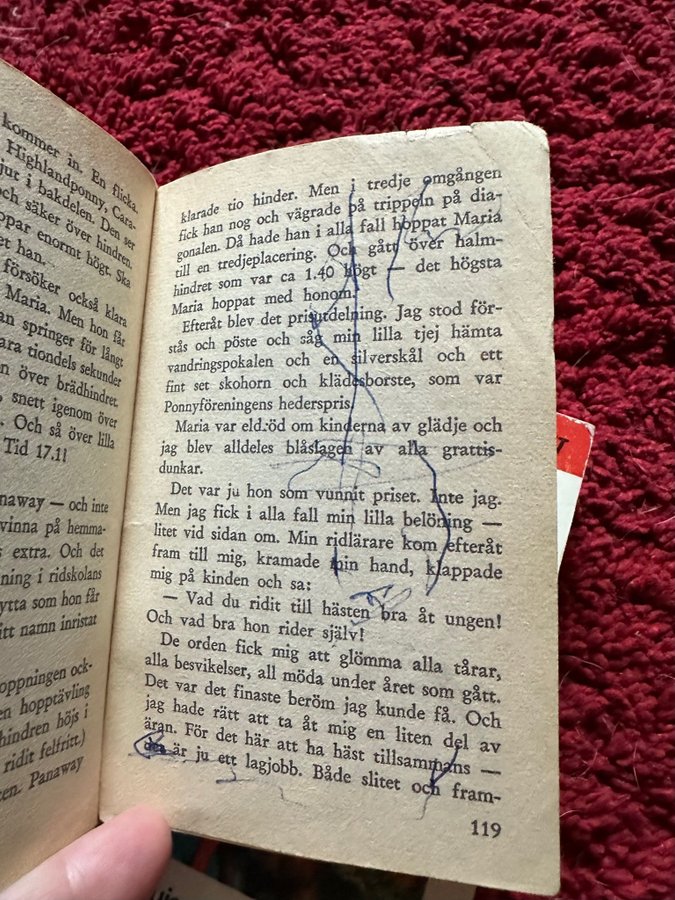 kommer in. En flicka.
Highlandponny, Cara-
jut i bakdelen. Den ser
och säker över hindren.
ppar enormt högt. Ska
et han.
försöker också klara
Maria. Men hon får
an springer för långt
ara tiondels sekunder
n över brädhindret.
, snett igenom över
. Och så över lilla
Tid 17.1!
naway — och inte
vinna på hemma-
s extra. Och det
ning i ridskolans
ytta som hon får
itt namn inristat
oppningen ock-
en hopptävling
hindren höjs i
ridit felfritt.)
en. Panaway
klarade tio hinder. Men i tredje omgången
fick han nog och vägrade på trippeln på dia-
gonalen. Då hade han i alla fall hoppat Maria
till en tredjeplacering. Och gått över halm-
hindret som var ca 1.40 högt — det högsta
Maria hoppat med honom.
Efteråt blev det prisutdelning. Jag stod för-
stås och pöste och såg min lilla tjej hämta
vandringspokalen och en silverskål och ett
fint set skohorn och klädesborste, som var
Ponnyföreningens hederspris.
Maria var eld:öd om kinderna av glädje och
jag blev alldeles blåslagen av alla grattis-
dunkar.
Det var ju hon som vunnit priset. Inte jag.
Men jag fick i alla fall min lilla belöning —
litet vid sidan om. Min ridlärare kom efteråt
fram till mig, kramade min hand, klappade
mig på kinden och sa:
— Vad du ridit till hästen bra åt ungen!
Och vad bra hon rider själv!
De orden fick mig att glömma alla tårar,
alla besvikelser, all möda under året som gått.
Det var det finaste beröm jag kunde få. Och
jag hade rätt att ta åt mig en liten del av
äran. För det här att ha häst tillsammans —
är ju ett lagjobb. Både slitet och fram-
119